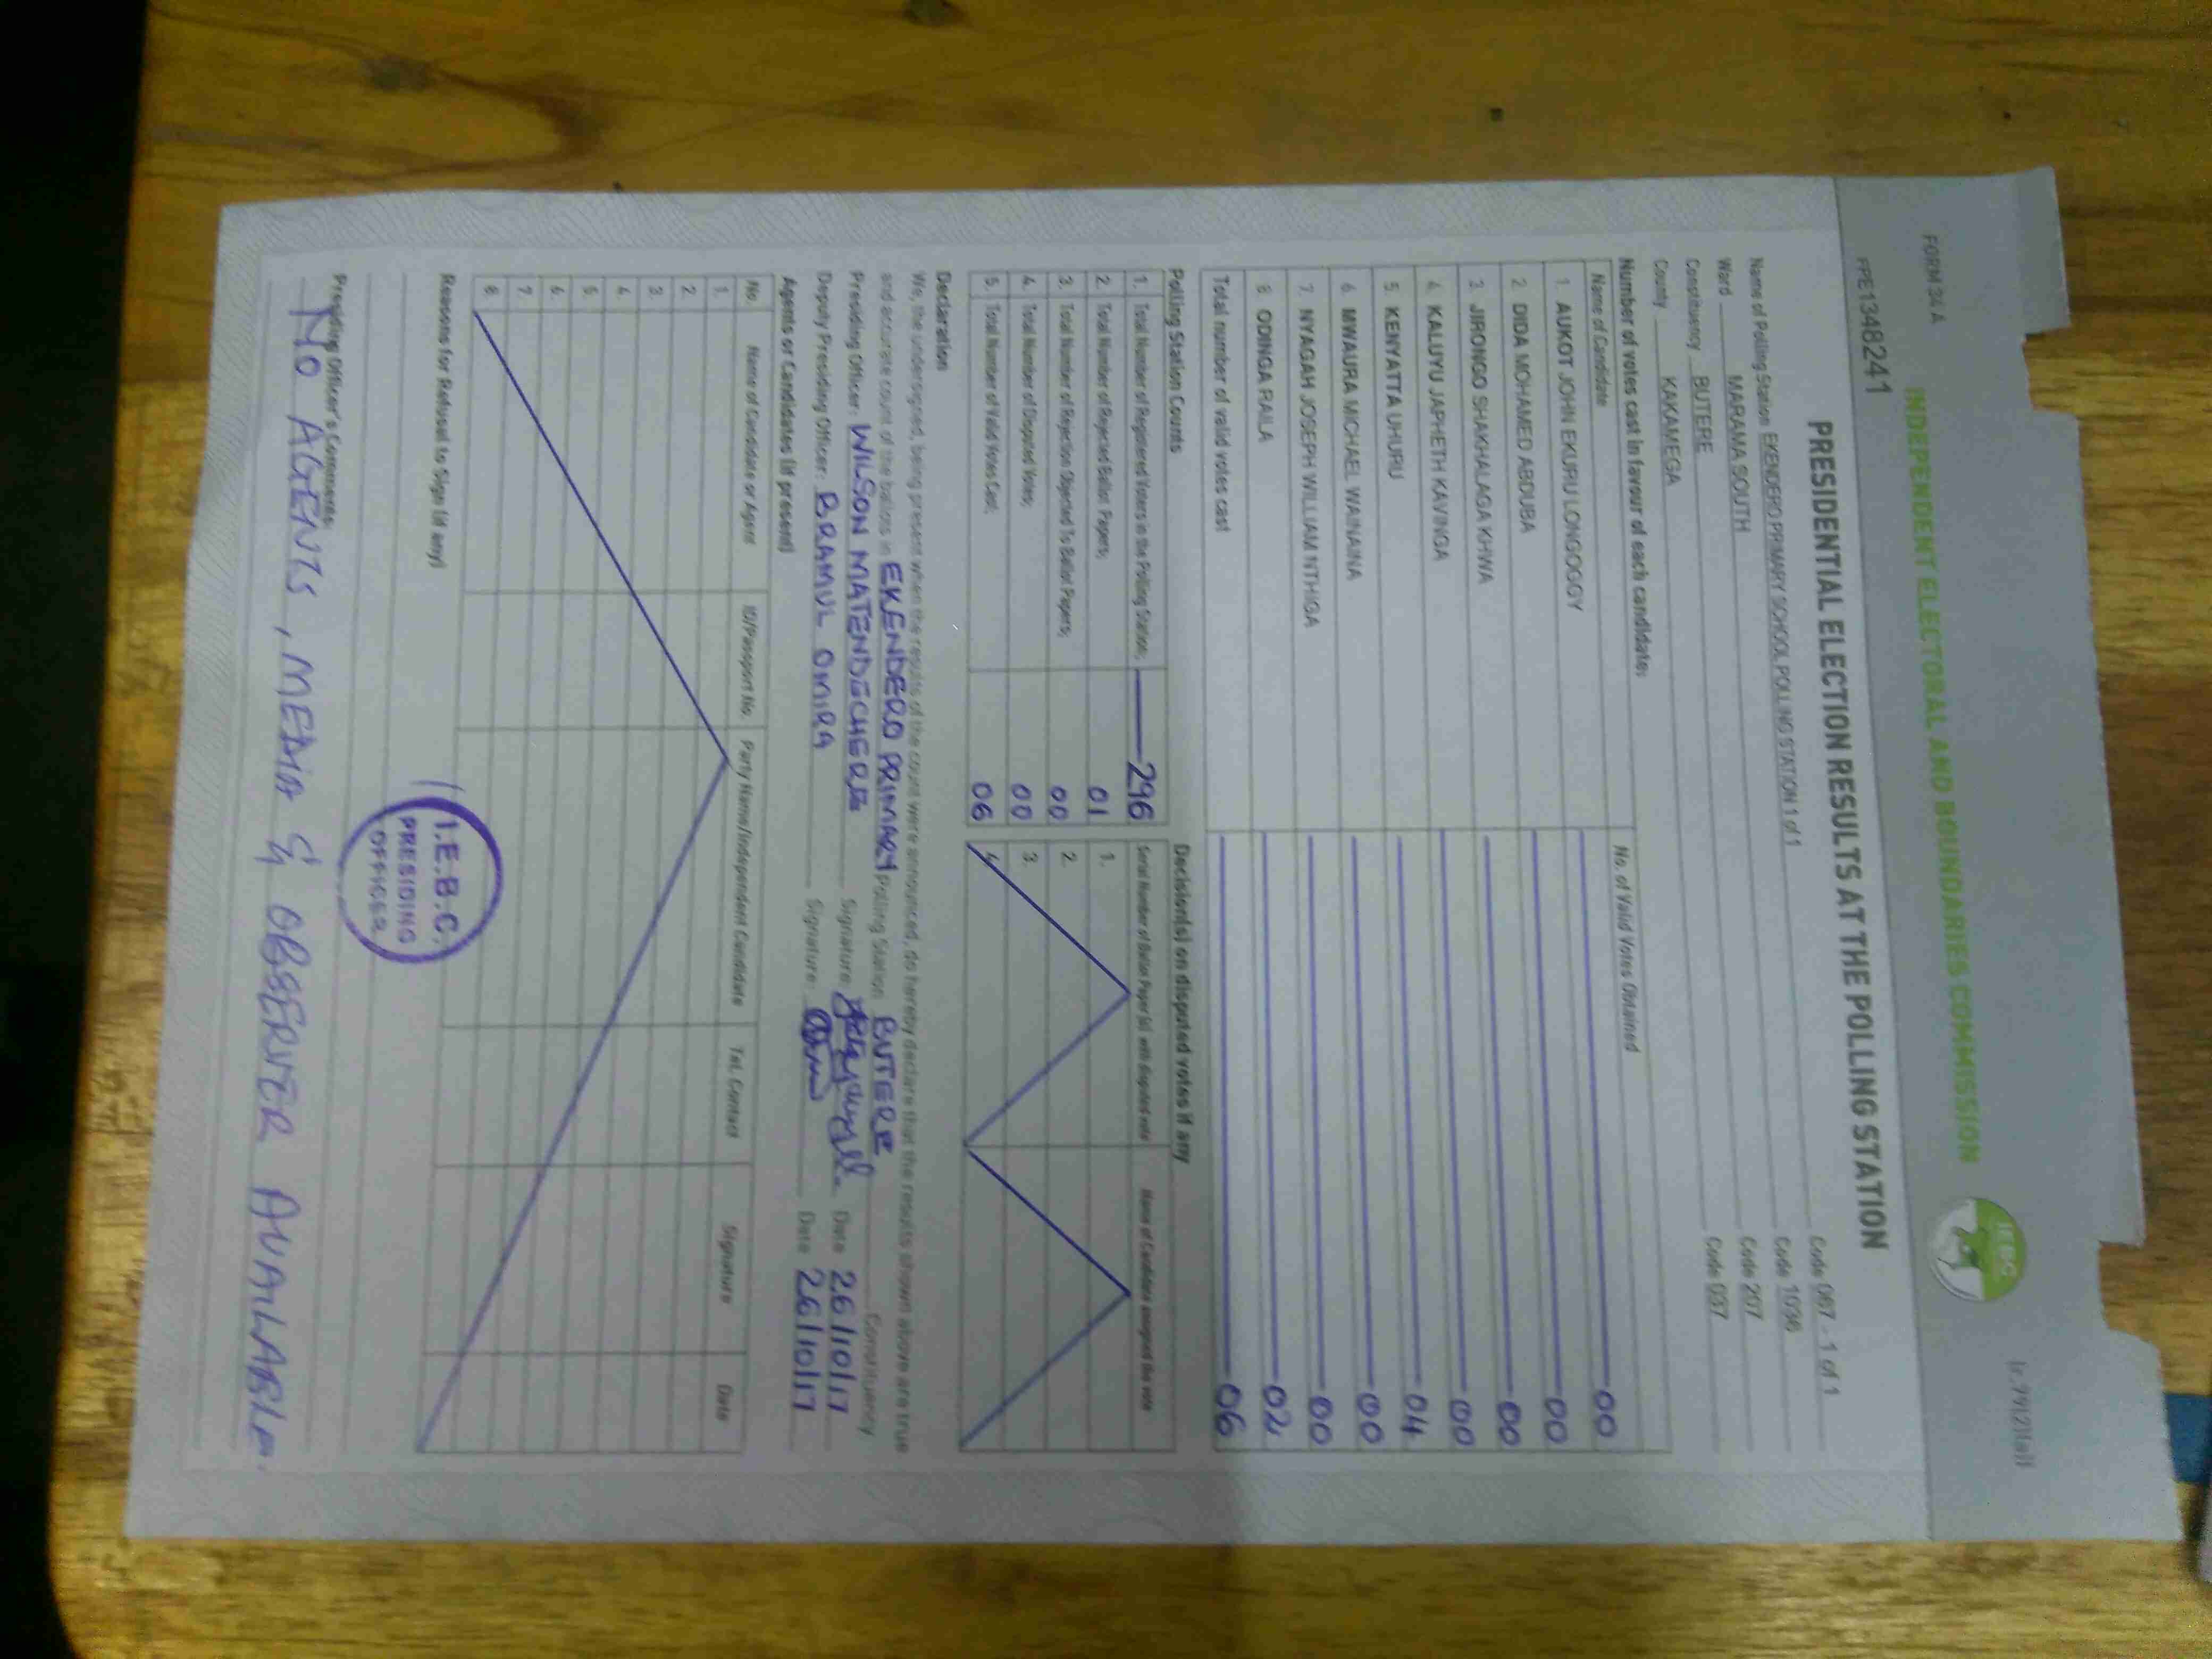 FORM 34 A
INDEPENDENT ELECTORAL AND BOUNDARIES COMMISSION
IEBC
FPE1348241
PRESIDENTIAL ELECTION RESULTS AT THE POLLING STATION
Name of Polling Station EKENDERO PRIMARY SCHOOL POLLING STATION 1 of 1 Code 067 - 1 of 1
Ward MARAMA SOUTH Code 1036
Constituency BUTERE Code 207
County KAKAMEGA Code 037
Number of votes cast in favour of each candidate:
Name of Candidate No. of Valid Votes Obtained
1. AUKOT JOHN EKURU LONGOGGY 00
2. DIDA MOHAMED ABDUBA 00
3. JIRONGO SHAKHALAGA KHWA 00
4. KALUYU JAPHETH KAVINGA 00
5. KENYATTA UHURU 04
6. MWAURA MICHAEL WAINAINA 00
7. NYAGAH JOSEPH WILLIAM NTHIGA 00
8. ODINGA RAILA 02
Total number of valid votes cast 06
Polling Station Counts Decision(s) on disputed votes if any
1. Total Number of Registered Voters in the Polling Station; 296 Serial Number of Ballot Paper (s) with disputed vote Name of Candidate assigned the vote
2. Total Number of Rejected Ballot Papers; 01 1.
3. Total Number of Rejection Objected To Ballot Papers; 00 2.
4. Total Number of Disputed Votes; 00 3.
5. Total Number of Valid Votes Cast; 06 4.
Declaration
We, the undersigned, being present when the results of the count were announced, do hereby declare that the results shown above are true
and accurate count of the ballots in EKENDERO PRIMARY Polling Station BUTERE Constituency
Presiding Officer: WILSON MATENDECHERE Signature: Date 26/10/17
Deputy Presiding Officer: BRAMUL OMIRA Signature: Date 26/10/17
Agents or Candidates (if present)
No. Name of Candidate or Agent ID/Passport No. Party Name/Independent Candidate Tel. Contact Signature Date
1.
2.
3.
4.
5.
6.
7.
8.
Reasons for Refusal to Sign (if any)
I.E.B.C.
PRESIDING
OFFICER
Presiding Officer's Comments:
NO AGENTS, MEDIA & OBSERVER AVAILABLE.